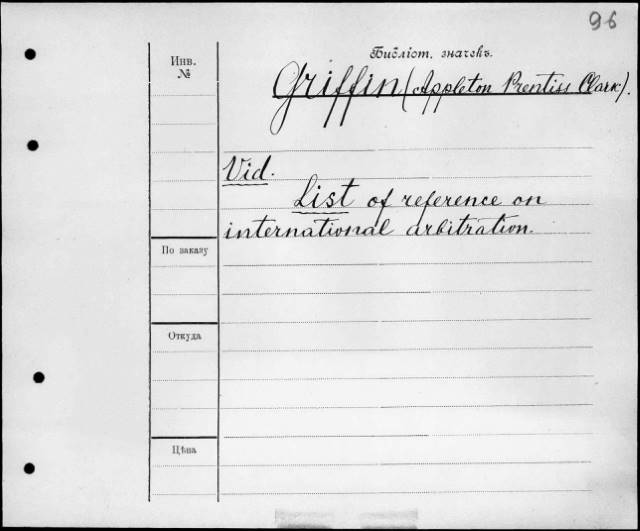 96
Библіот. значекъ.
Инв.
№
Griffin (Appleton Prentiss Clark).
Vid.
List of reference on
international arbitration.
По заказу
Откуда
Цѣна